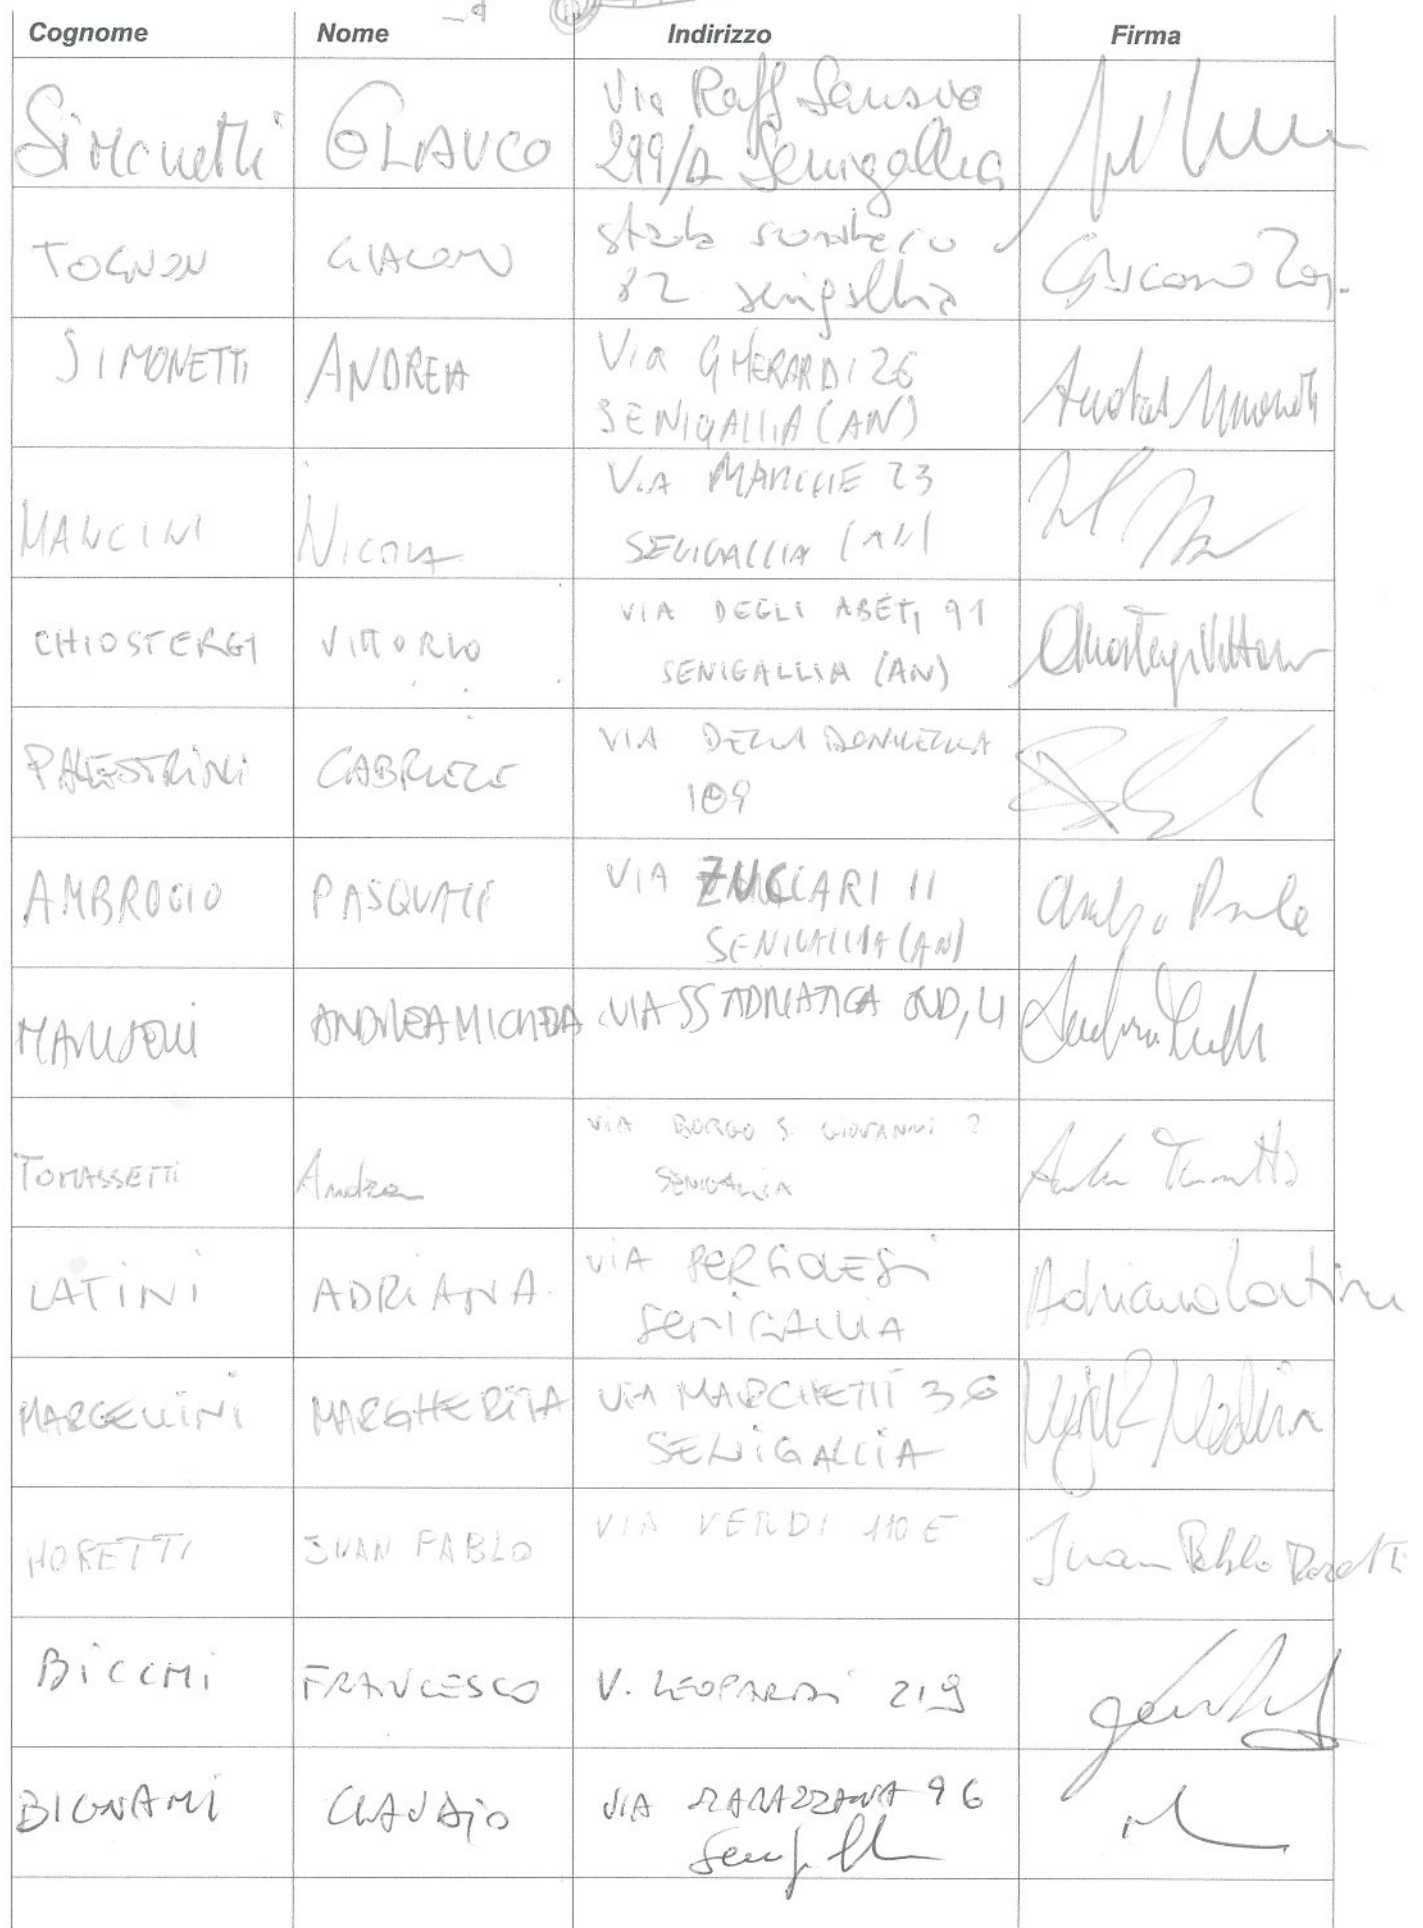 Cognome Nome Indirizzo Firma
Simonetti GLAUCO Via Raff Sansio
299/A Senigallia
TOGNON GIACOMO
82 senigallia Giacomo
SIMONETTI ANDREA Via GHERARDI 26
SENIGALLIA (AN) Andrea Simonetti
MANCINI NICOLA VIA MARCHE 23
SENIGALLIA (AN)
CHIOSTERGI VITTORIO VIA DEGLI ABETI 91
SENIGALLIA (AN) Chiostergi Vittorio
PALESTRINI GABRIELE VIA DELLA DONNELLA
109
AMBROGIO PASQUALE VIA ZUCCARI 11
SENIGALLIA (AN)
ANDREA MICHELA VIA SS ADRIATICA SUD,
TOMASSETTI Andrea VIA BORGO S. GIOVANNI 2
SENIGALLIA
LATINI ADRIANA VIA PERGOLESI
SENIGALLIA Adriana Latini
MARCELLINI MARGHERITA VIA MARCHETTI 36
SENIGALLIA
MORETTI JUAN PABLO VIA VERDI 110 E
Juan Pablo Moretti
BICCHI FRANCESCO V. LEOPARDI 219
BIGNAMI CLAUDIO VIA 96
Senigallia